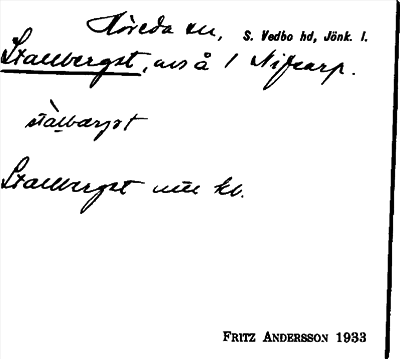 Höreda sn, S. Vedbo hd, Jönk. l.
Stallbergst, avs å 1 Nifsarp.
Stallbergst utt. kb.
FRITZ ANDERSSON 1933